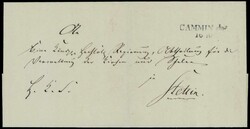 An
CAMMIN
Eine Königl. Hochlöbl. Regierung, Abtheilung für die
Verwaltung der Kirchen und Schulen
zu
H. K. S.
Stettin